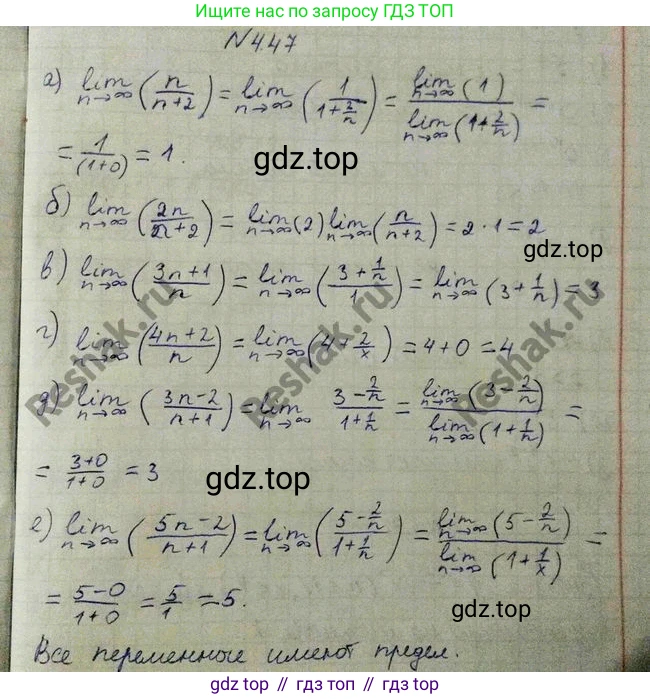 Ищите нас по запросу ГДЗ ТОП
N447
а) lim n→∞ (n/(n+2)) = lim n→∞ (1/(1+2/n)) = lim n→∞ (1) / lim n→∞ (1+2/n) =
= 1/(1+0) = 1.
gdz.top
б) lim n→∞ (2n/(n+2)) = lim n→∞ (2) lim n→∞ (n/(n+2)) = 2·1 = 2
gdz.top
в) lim n→∞ ((3n+1)/n) = lim n→∞ ((3+1/n)/1) = lim n→∞ (3+1/n) = 3
г) lim n→∞ ((4n+2)/n) = lim n→∞ (4+2/x) = 4+0 = 4
Reshak.ru
Reshak.ru
д) lim n→∞ ((3n-2)/(n+1)) = lim n→∞ (3-2/n)/(1+1/n) = lim n→∞ (3-2/n) / lim n→∞ (1+1/n) =
= (3+0)/(1+0) = 3
gdz.top
е) lim n→∞ ((5n-2)/(n+1)) = lim n→∞ ((5-2/n)/(1+1/n)) = lim n→∞ (5-2/n) / lim n→∞ (1+1/x) =
= (5-0)/(1+0) = 5/1 = 5.
gdz.top
Все переменные имеют предел.
gdz.top gdz.top gdz.top gdz.top